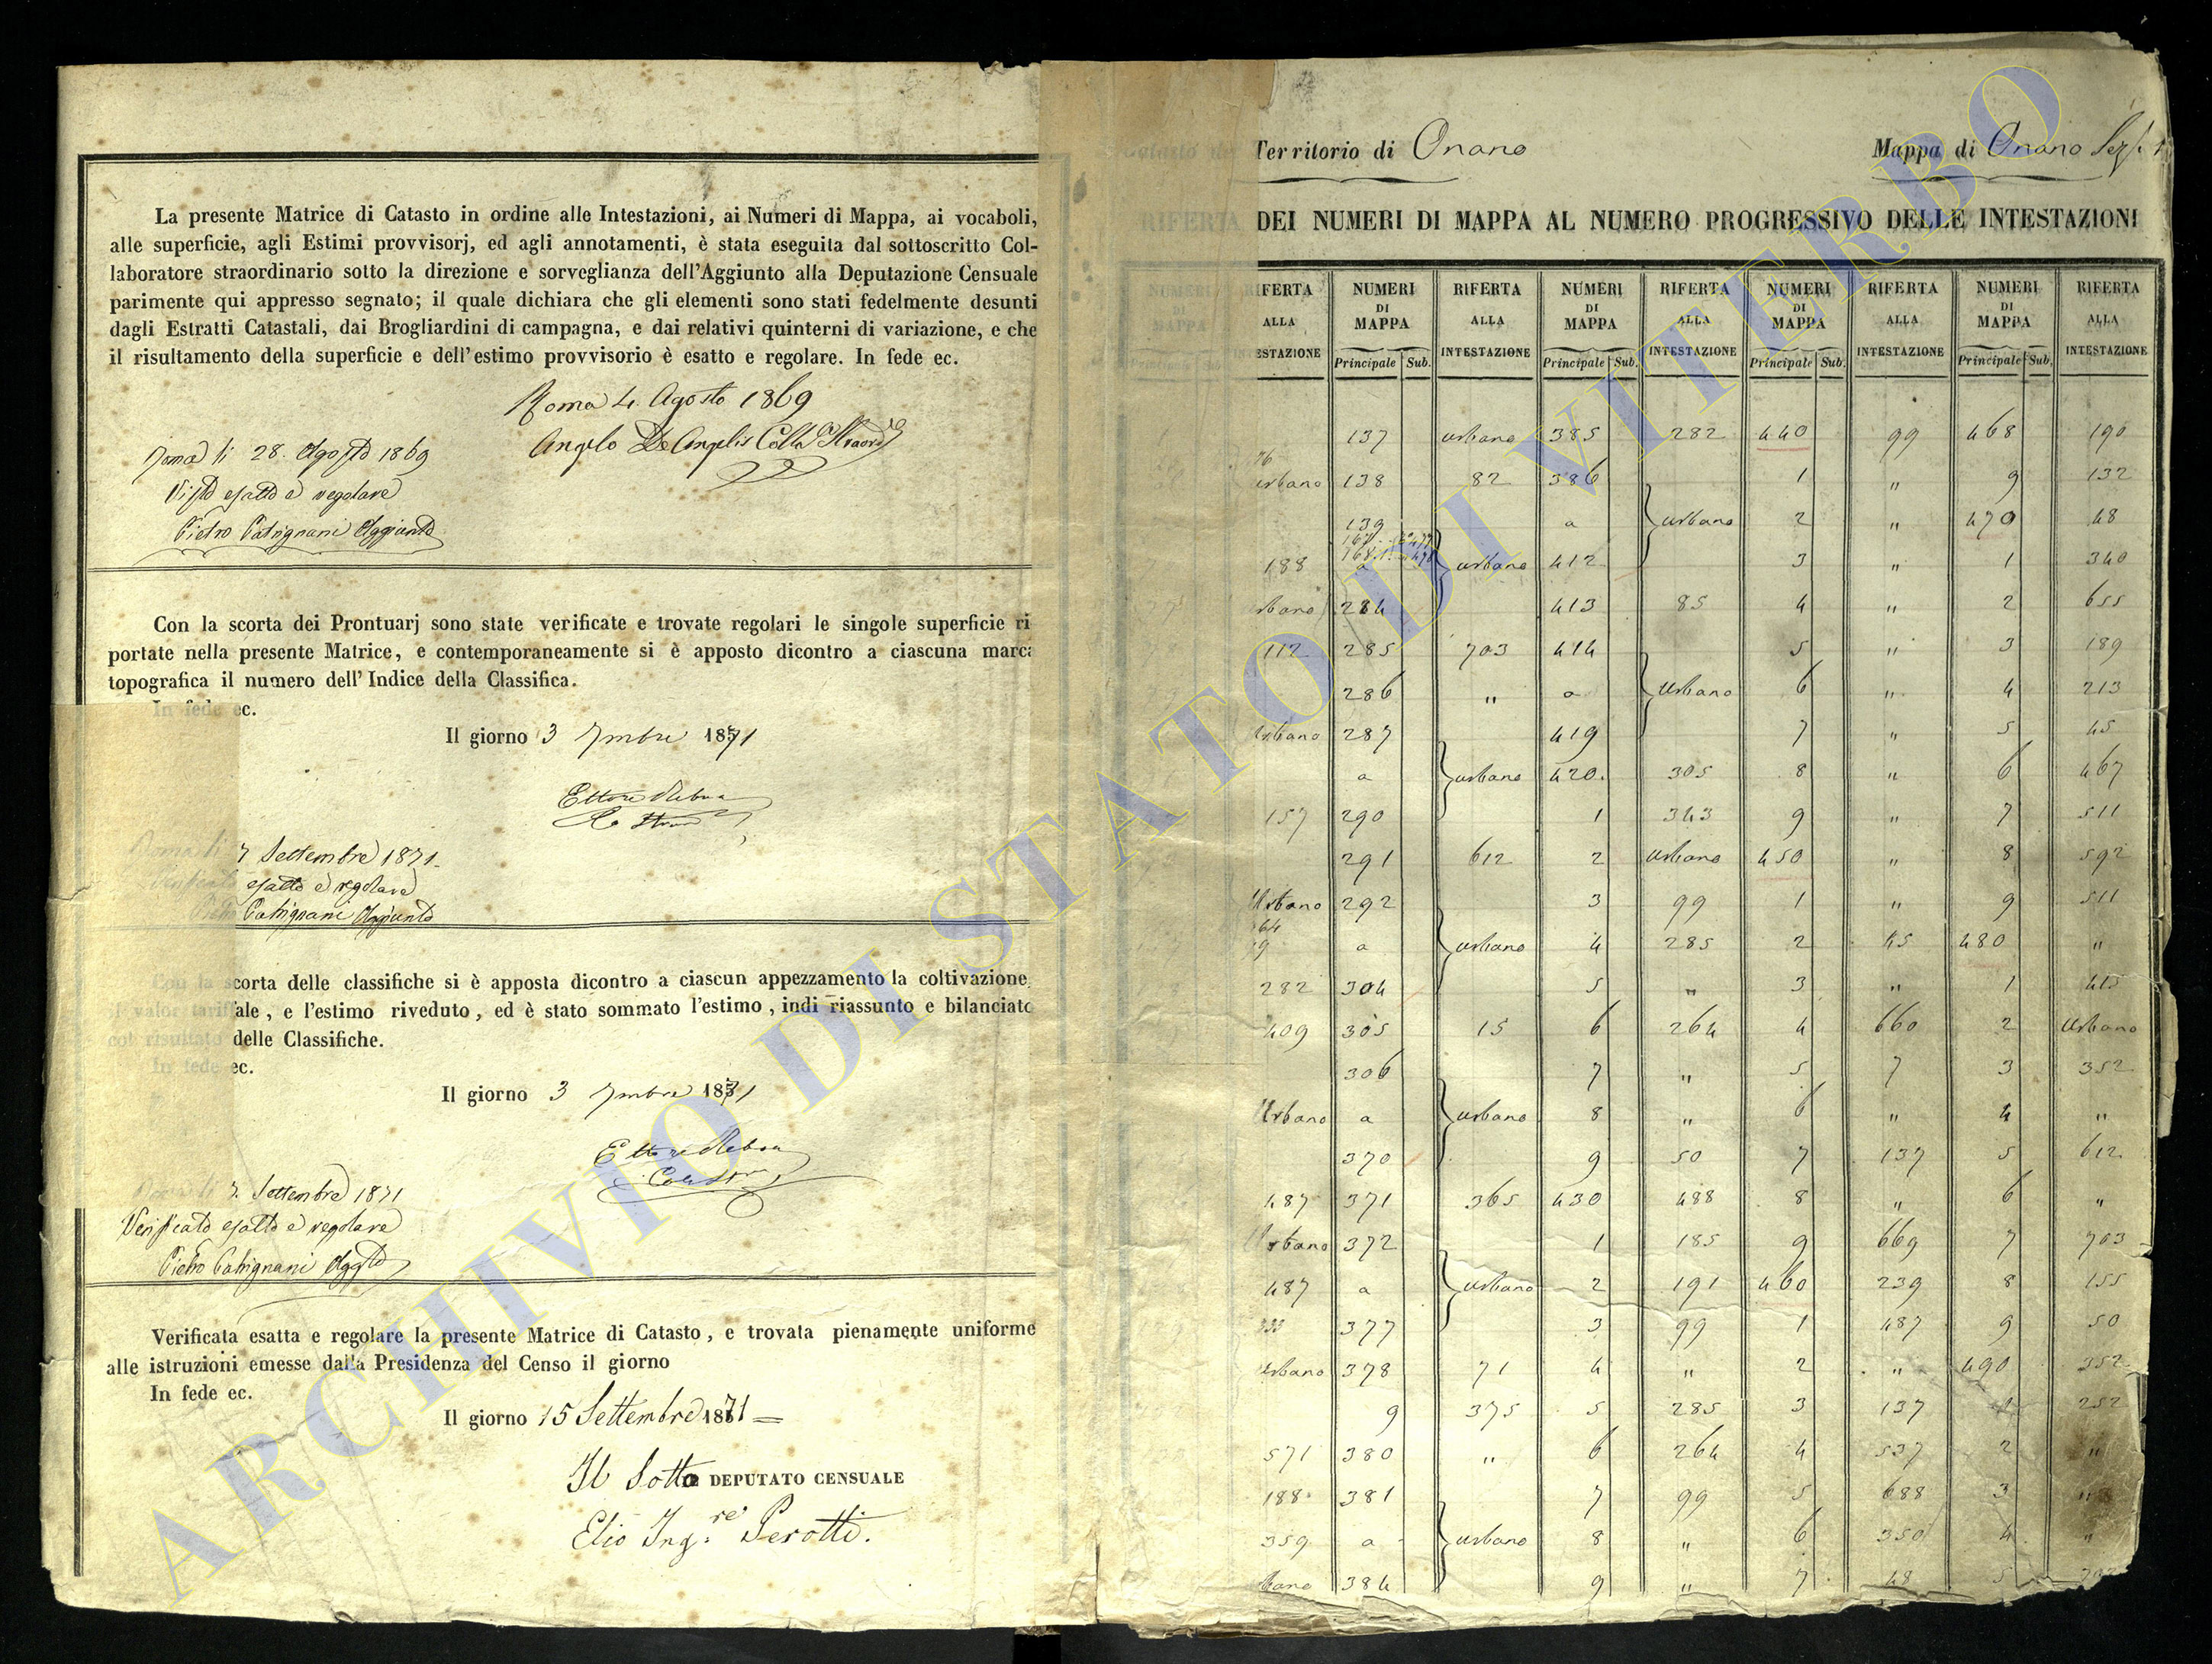 La presente Matrice di Catasto in ordine alle Intestazioni, ai Numeri di Mappa, ai vocaboli,
alle superficie, agli Estimi provvisorj, ed agli annotamenti, è stata eseguita dal sottoscritto Col-
laboratore straordinario sotto la direzione e sorveglianza dell'Aggiunto alla Deputazione Censuale
parimente qui appresso segnato; il quale dichiara che gli elementi sono stati fedelmente desunti
dagli Estratti Catastali, dai Brogliardini di campagna, e dai relativi quinterni di variazione, e che
il risultamento della superficie e dell'estimo provvisorio è esatto e regolare. In fede ec.
Roma 4. Agosto 1869
Angelo De Angelis
Roma li 28. Agosto 1869
Visto esatto e regolare
Pietro Catrignani Aggiunto
Con la scorta dei Prontuarj sono state verificate e trovate regolari le singole superficie ri
portate nella presente Matrice, e contemporaneamente si è apposto dicontro a ciascuna marca
topografica il numero dell'Indice della Classifica.
In fede ec.
Il giorno 3 7mbre 1871
Ettore
Roma li 7 Settembre 1871
Verificato esatto e regolare
Pietro Catrignani Aggiunto
Con la scorta delle classifiche si è apposta dicontro a ciascun appezzamento la coltivazione
il valor tariffale, e l'estimo riveduto, ed è stato sommato l'estimo, indi riassunto e bilanciato
col risultato delle Classifiche.
In fede ec.
Il giorno 3 7mbre 1871
Ettore
Roma li 7. Settembre 1871
Verificato esatto e regolare
Pietro Catrignani Aggto
Verificata esatta e regolare la presente Matrice di Catasto, e trovata pienamente uniforme
alle istruzioni emesse dalla Presidenza del Censo il giorno
In fede ec.
Il giorno 15 Settembre 1871
Il Sotto DEPUTATO CENSUALE
Elio Ing.re Perotti.
Catasto Territorio di Onano Mappa di Onano Sez.
RIFERTA DEI NUMERI DI MAPPA AL NUMERO PROGRESSIVO DELLE INTESTAZIONI
NUMERI DI MAPPA Principale Sub. RIFERTA ALLA INTESTAZIONE NUMERI DI MAPPA Principale Sub. RIFERTA ALLA INTESTAZIONE NUMERI DI MAPPA Principale Sub. RIFERTA ALLA INTESTAZIONE NUMERI DI MAPPA Principale Sub. RIFERTA ALLA INTESTAZIONE NUMERI DI MAPPA Principale Sub. RIFERTA ALLA INTESTAZIONE
137 urbano 385 282 440 99 468 190
urbano 138 82 386 1 " 9 132
139 a urbano 2 " 470 48
188 a urbano 412 3 " 1 340
284 413 85 4 " 2 655
112 285 703 414 5 " 3 189
286 " a Urbano 6 " 4 213
Urbano 287 419 7 " 5 45
a urbano 420. 305 8 " 6 467
157 290 1 343 9 " 7 511
291 612 2 urbano 450 " 8 592
Urbano 292 3 99 1 " 9 511
a urbano 4 285 2 45 480 "
282 304 5 " 3 " 1 415
409 305 15 6 264 4 660 2 Urbano
306 7 " 5 7 3 352
Urbano a urbano 8 " 6 " 4 "
370 9 50 7 137 5 612
487 371 365 430 488 8 " 6 "
Urbano 372 1 185 9 669 7 703
487 a urbano 2 191 460 239 8 155
333 377 3 99 1 487 9 50
Urbano 378 71 4 " 2 " 490 352
9 375 5 285 3 137 1 252
571 380 " 6 264 4 537 2 "
188 381 7 99 5 688 3 "
359 a urbano 8 " 6 350 4 "
384 9 " 7 48 5
ARCHIVIO DI STATO DI VITERBO